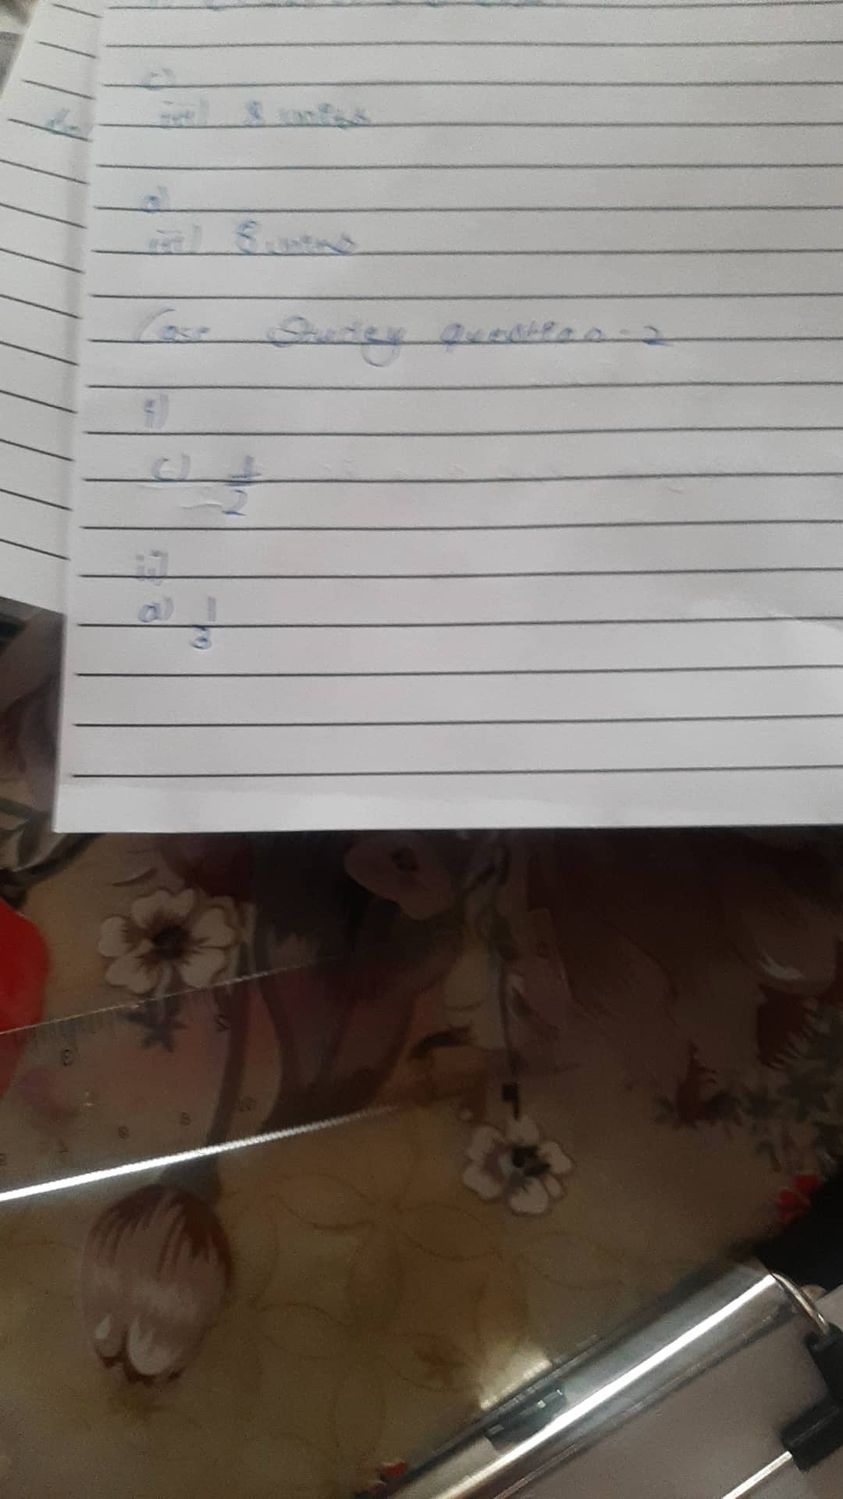 c)
iii) 8 units
d)
iii) 8 units
Case Study Question-2
i)
c) 1/2
ii)
a) 1/3